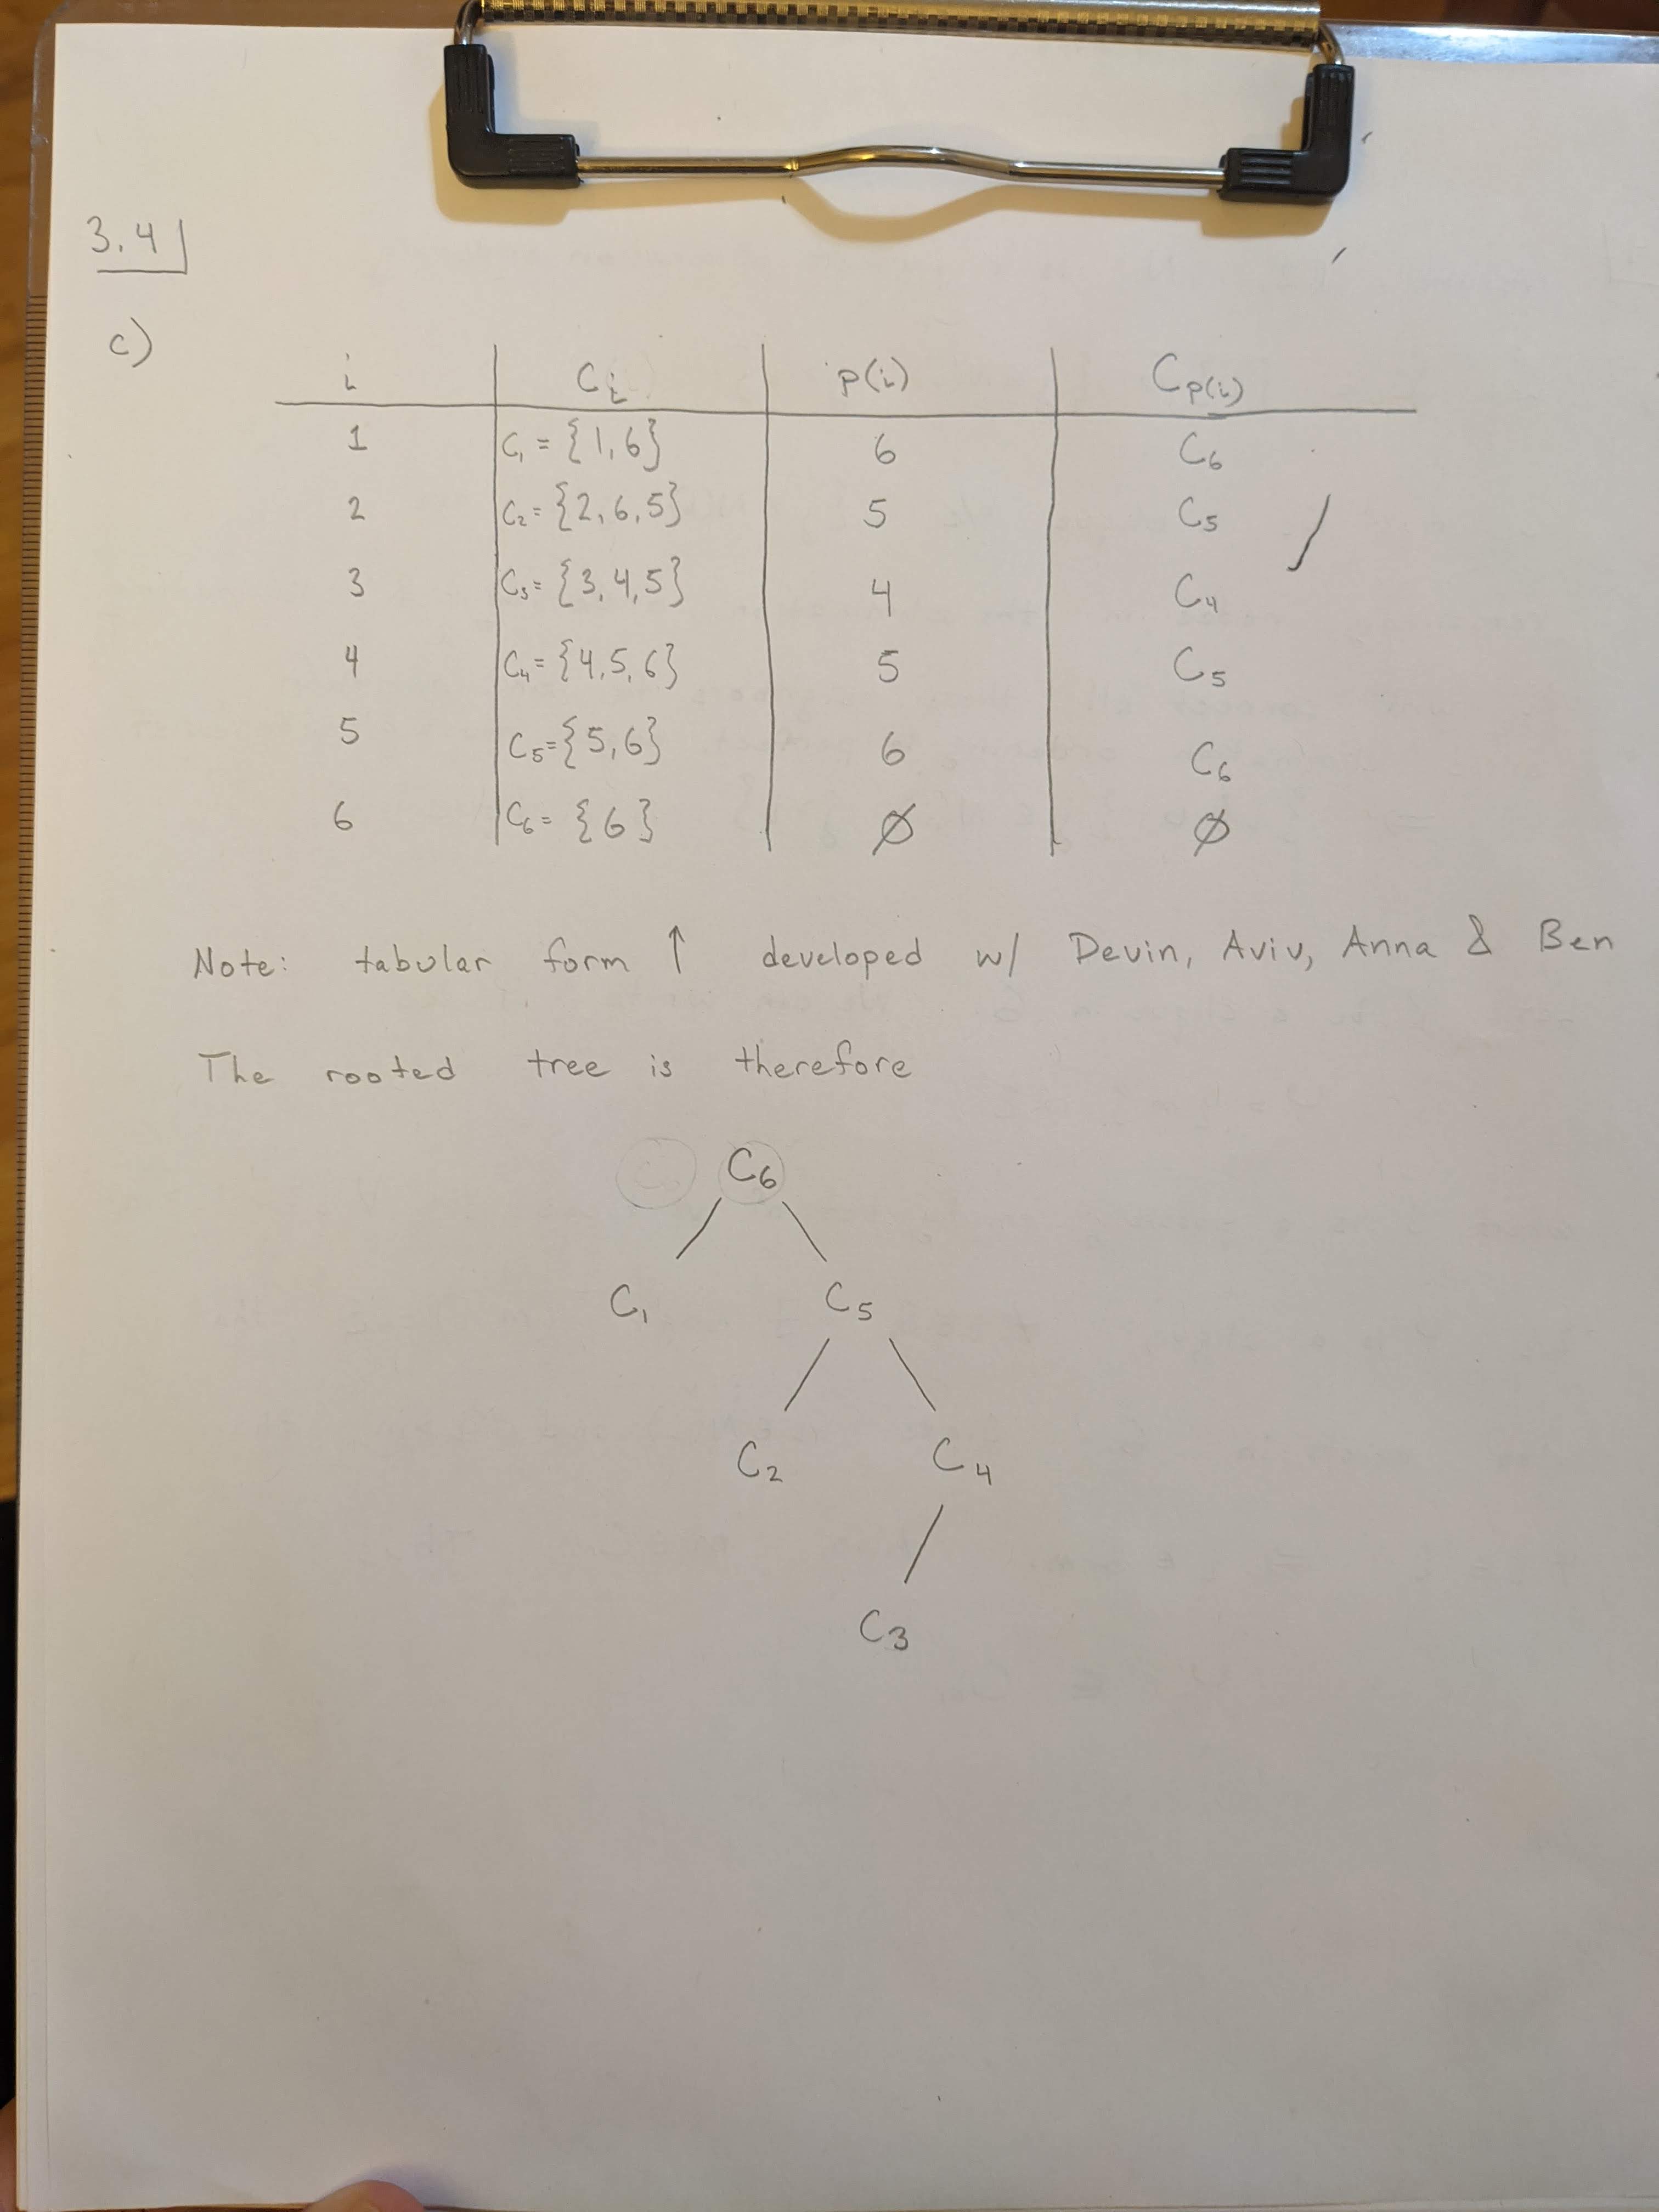 3.4
c)
i | C_i | p(i) | C_p(i)
1 | C₁ = {1,6} | 6 | C₆
2 | C₂ = {2,6,5} | 5 | C₅
3 | C₃ = {3,4,5} | 4 | C₄
4 | C₄ = {4,5,6} | 5 | C₅
5 | C₅ = {5,6} | 6 | C₆
6 | C₆ = {6} | ∅ | ∅
Note: tabular form ↑ developed w/ Devin, Aviv, Anna & Ben
The rooted tree is therefore
C₆
C₁ C₅
C₂ C₄
C₃